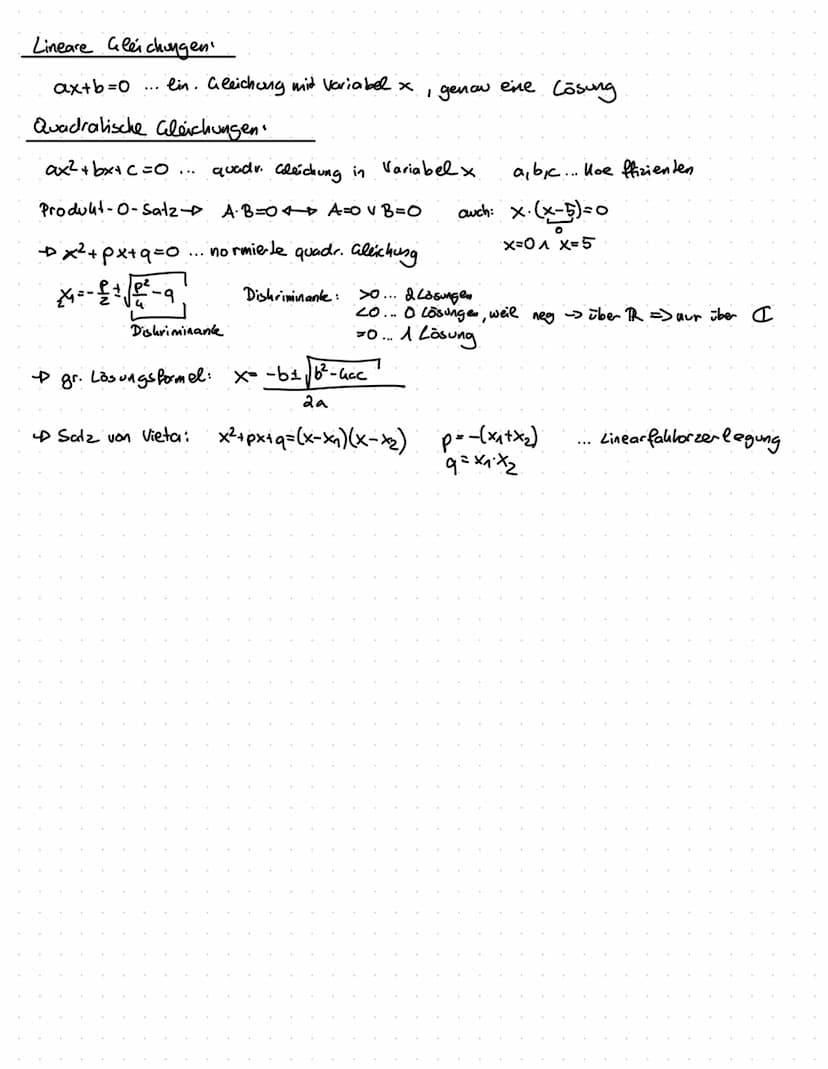 Lineare Gleichungen:
ax+b=0 ... lin. Gleichung mit Variabel x, genau eine Lösung
Quadratische Gleichungen:
ax²+bx+c=0 ... quadr. Gleichung in Variabel x a,b,c ... Koeffizienten
Produkt-0-Satz → A·B=0 ↔ A=0 ∨ B=0 auch: x·(x-5)=0
0
x=0 ∧ x=5
→ x²+px+q=0 ... normierte quadr. Gleichung
x₁,₂=-p/2±√(p²/4-q) Diskriminante: >0 ... 2 Lösungen
<0 ... 0 Lösungen, weil neg → über ℝ ⇒ nur über ℂ
Diskriminante =0 ... 1 Lösung
→ gr. Lösungsformel: x= (-b±√(b²-4ac))/2a
→ Satz von Vieta: x²+px+q=(x-x₁)(x-x₂) p=-(x₁+x₂) ... Linearfaktorzerlegung
q=x₁·x₂